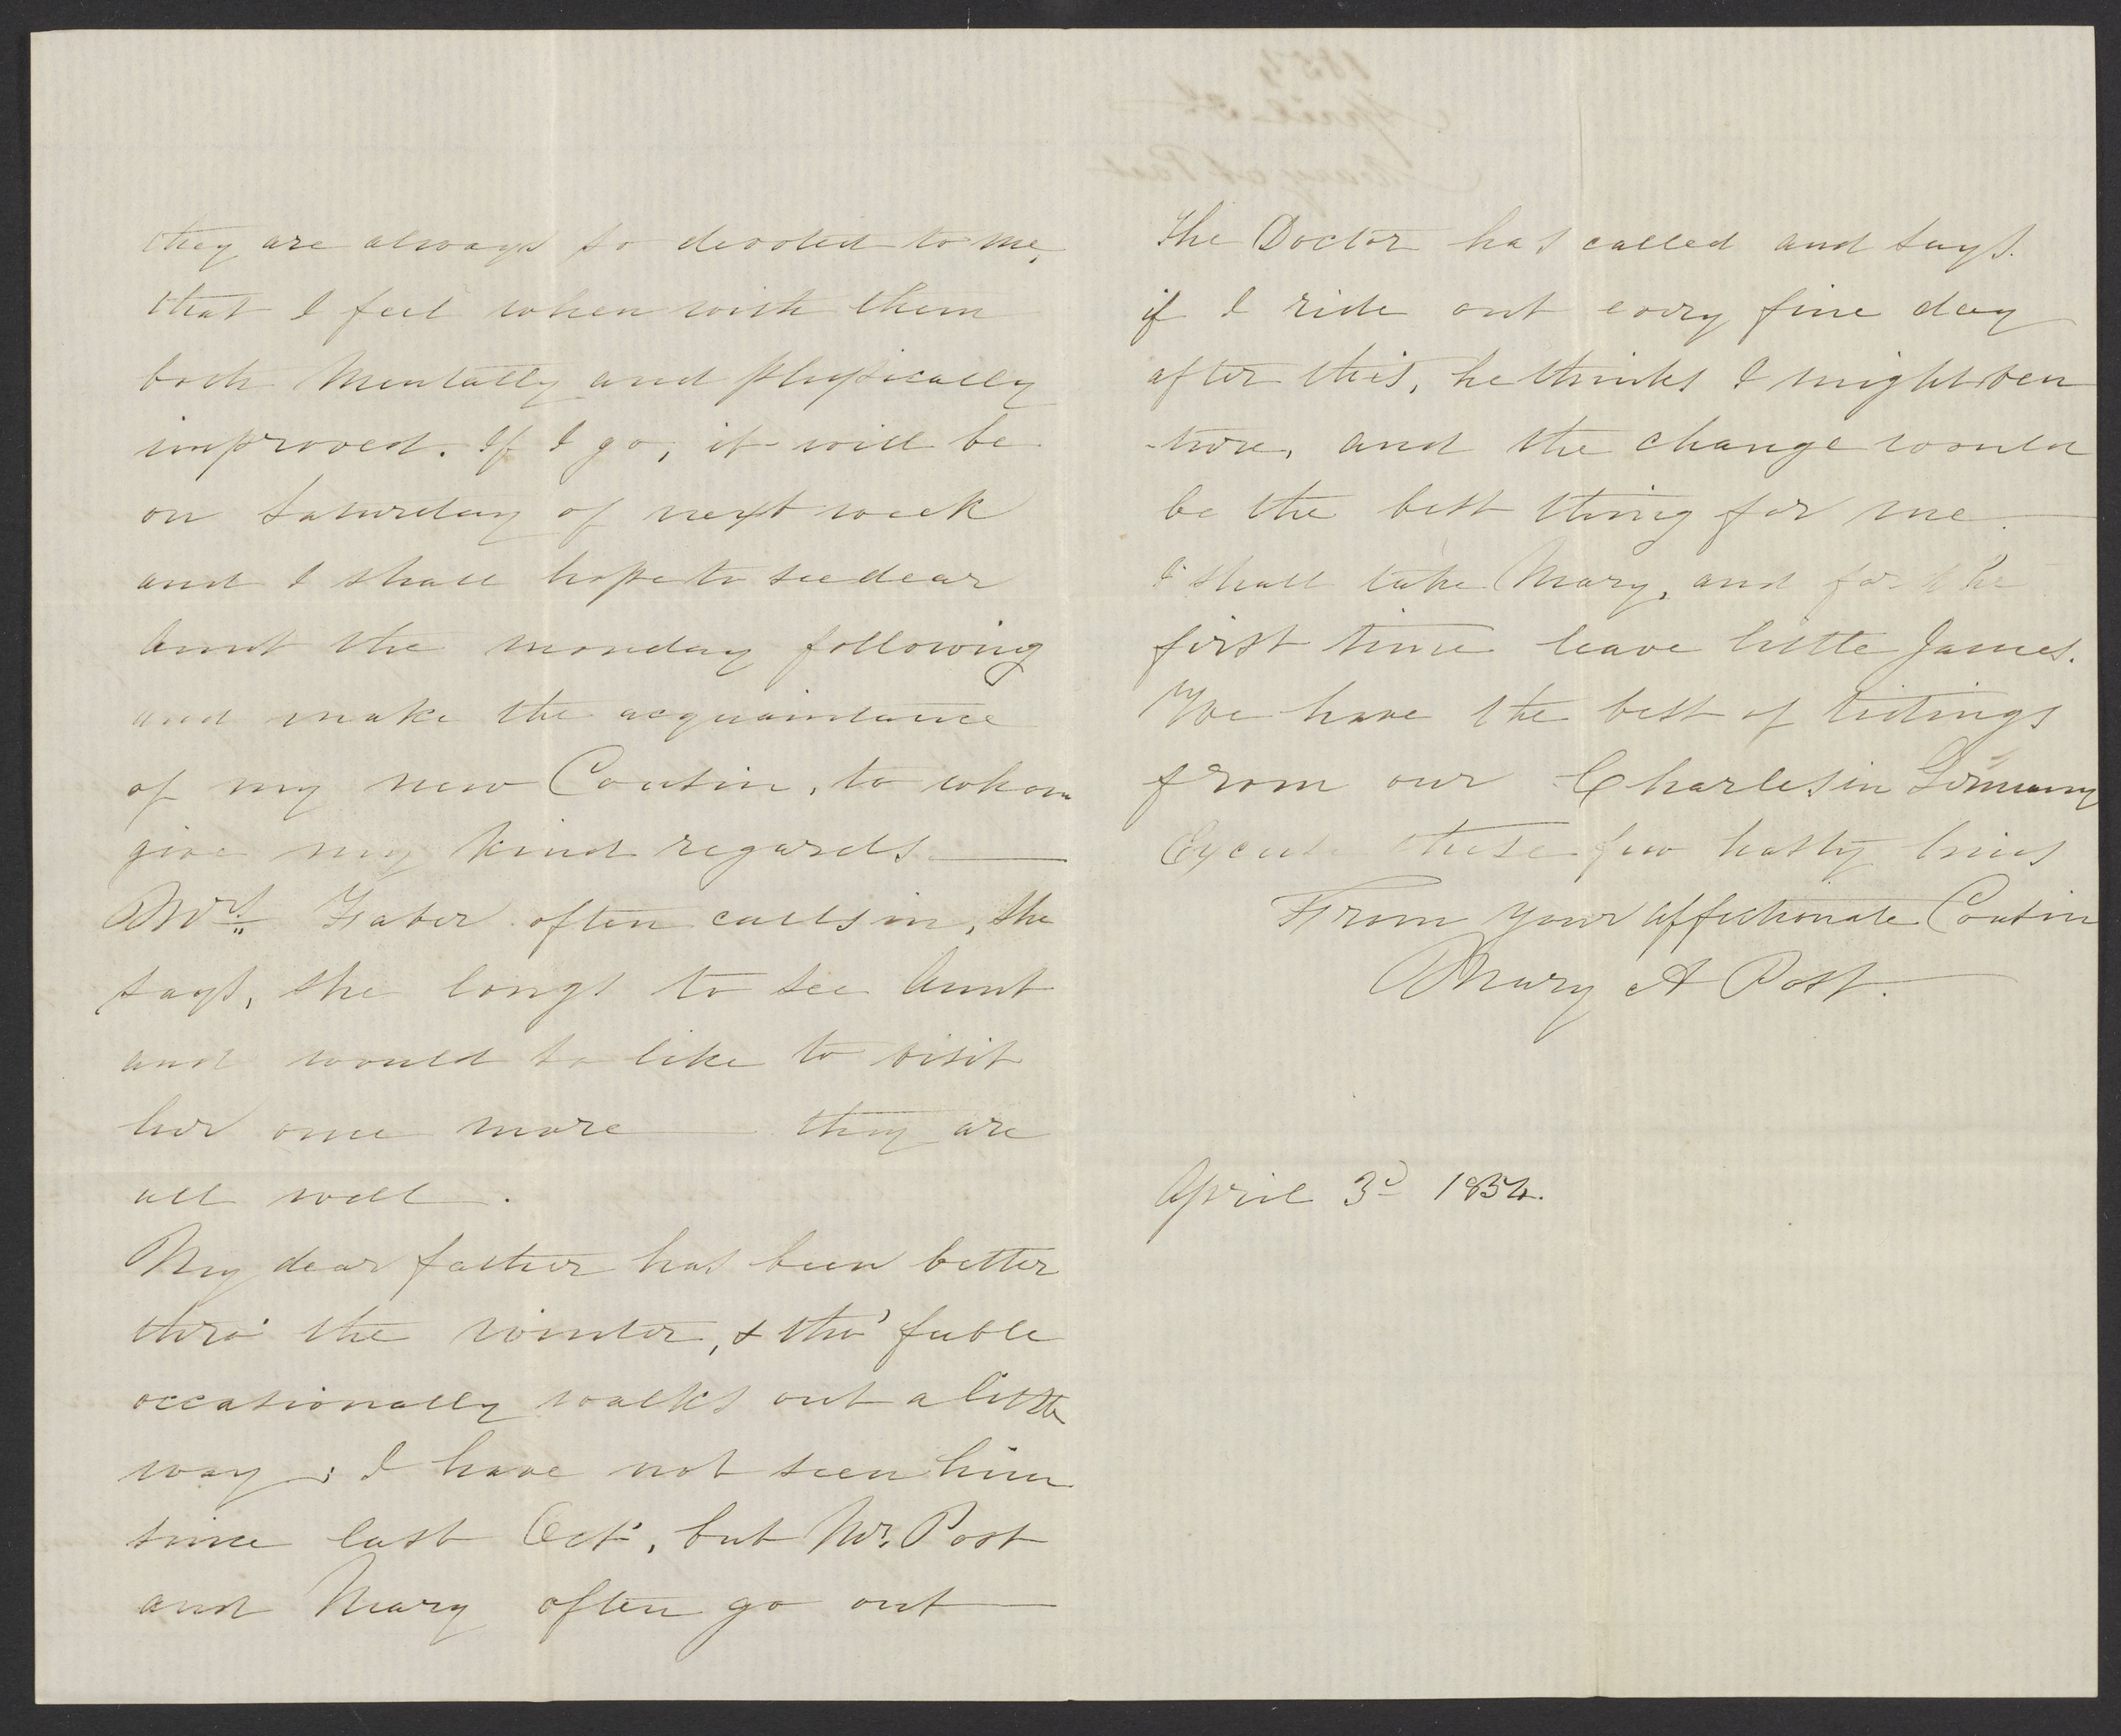 they are always so devoted to me,
that I feel when with them
both Mentally and physically
improved. If I go, it will be
on Saturday of next week
and I shall hope to see dear
Aunt the monday following
and make the acquaintance
of my new Cousin, to whom
give my kind regards.
Mrs. Faber often calls in, she
says, she longs to see Aunt
and would so like to visit
her once more they are
all well.
My dear father has been better
thro' the winter, & tho' feeble
occasionally walks out a little
way; I have not seen him
since last Oct', but Mr. Post
and Mary often go out
The Doctor has called and says.
if I ride out every fine day
after this, he thinks I might ven
-ture, and the change would
be the best thing for me.
I shall take Mary, and for the
first time leave little James.
We have the best of tidings
from our Charles in Germany
Excuse these few hasty lines
From your affectionate Cousin
Mary A Post.
April 3d 1854.